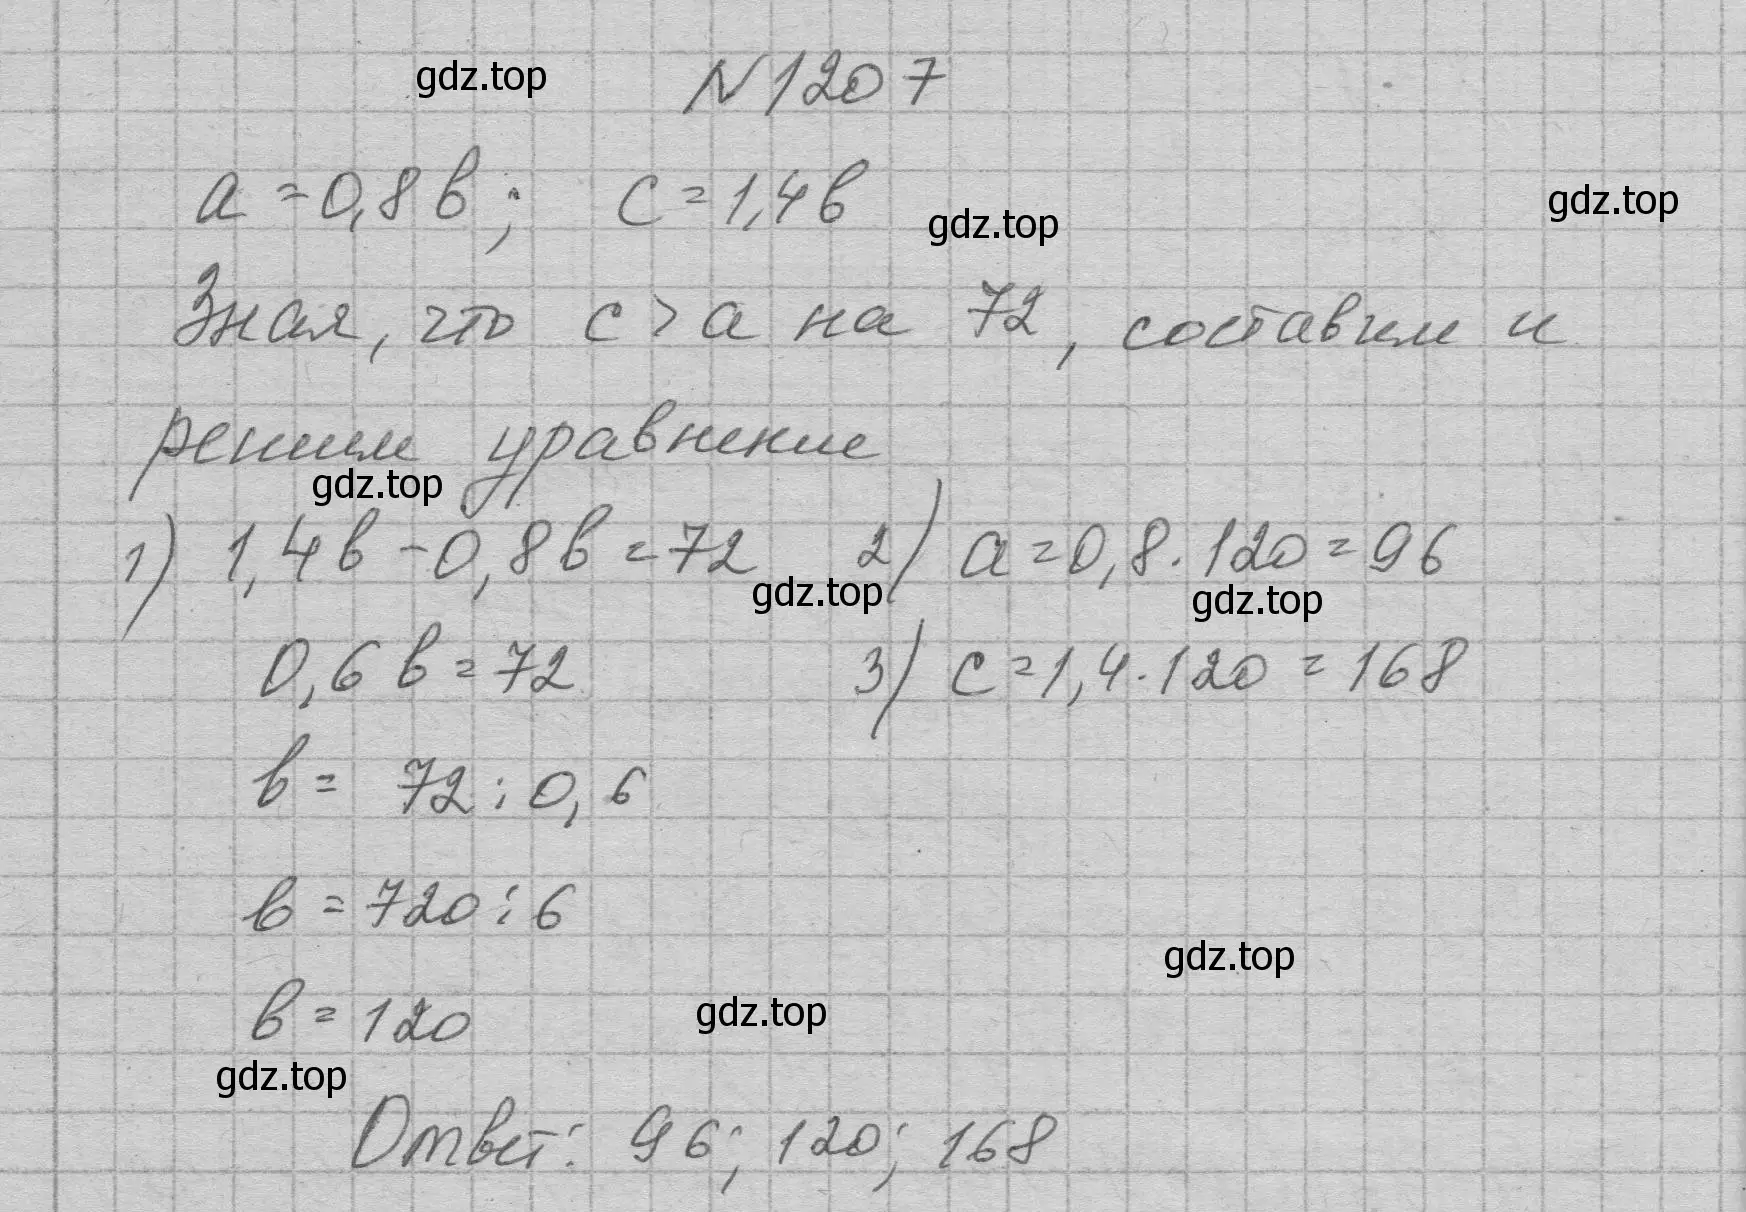 gdz.top
N 1207
a = 0,8в; c = 1,4в
gdz.top
gdz.top
Зная, что c > a на 72, составим и
решим уравнение
gdz.top
1) 1,4в - 0,8в = 72 2) a = 0,8 · 120 = 96
gdz.top
gdz.top
0,6в = 72 3) c = 1,4 · 120 = 168
в = 72 : 0,6
в = 720 : 6
gdz.top
в = 120
gdz.top
gdz.top
Ответ: 96; 120; 168